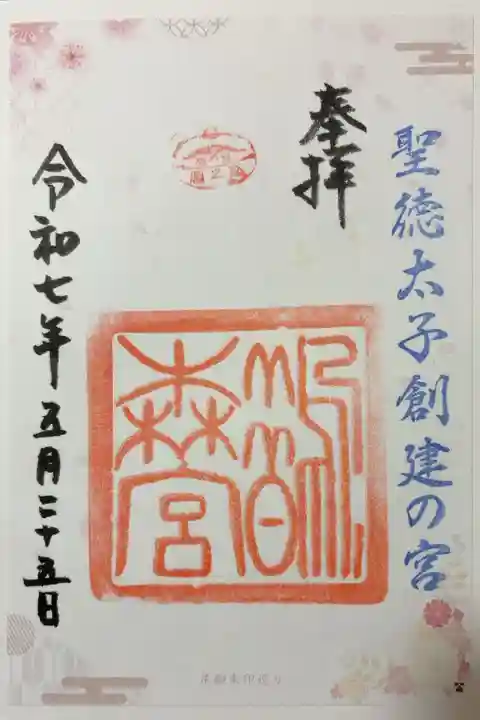 聖徳太子創建の宮
奉拝
森宮
令和七年五月二十五日